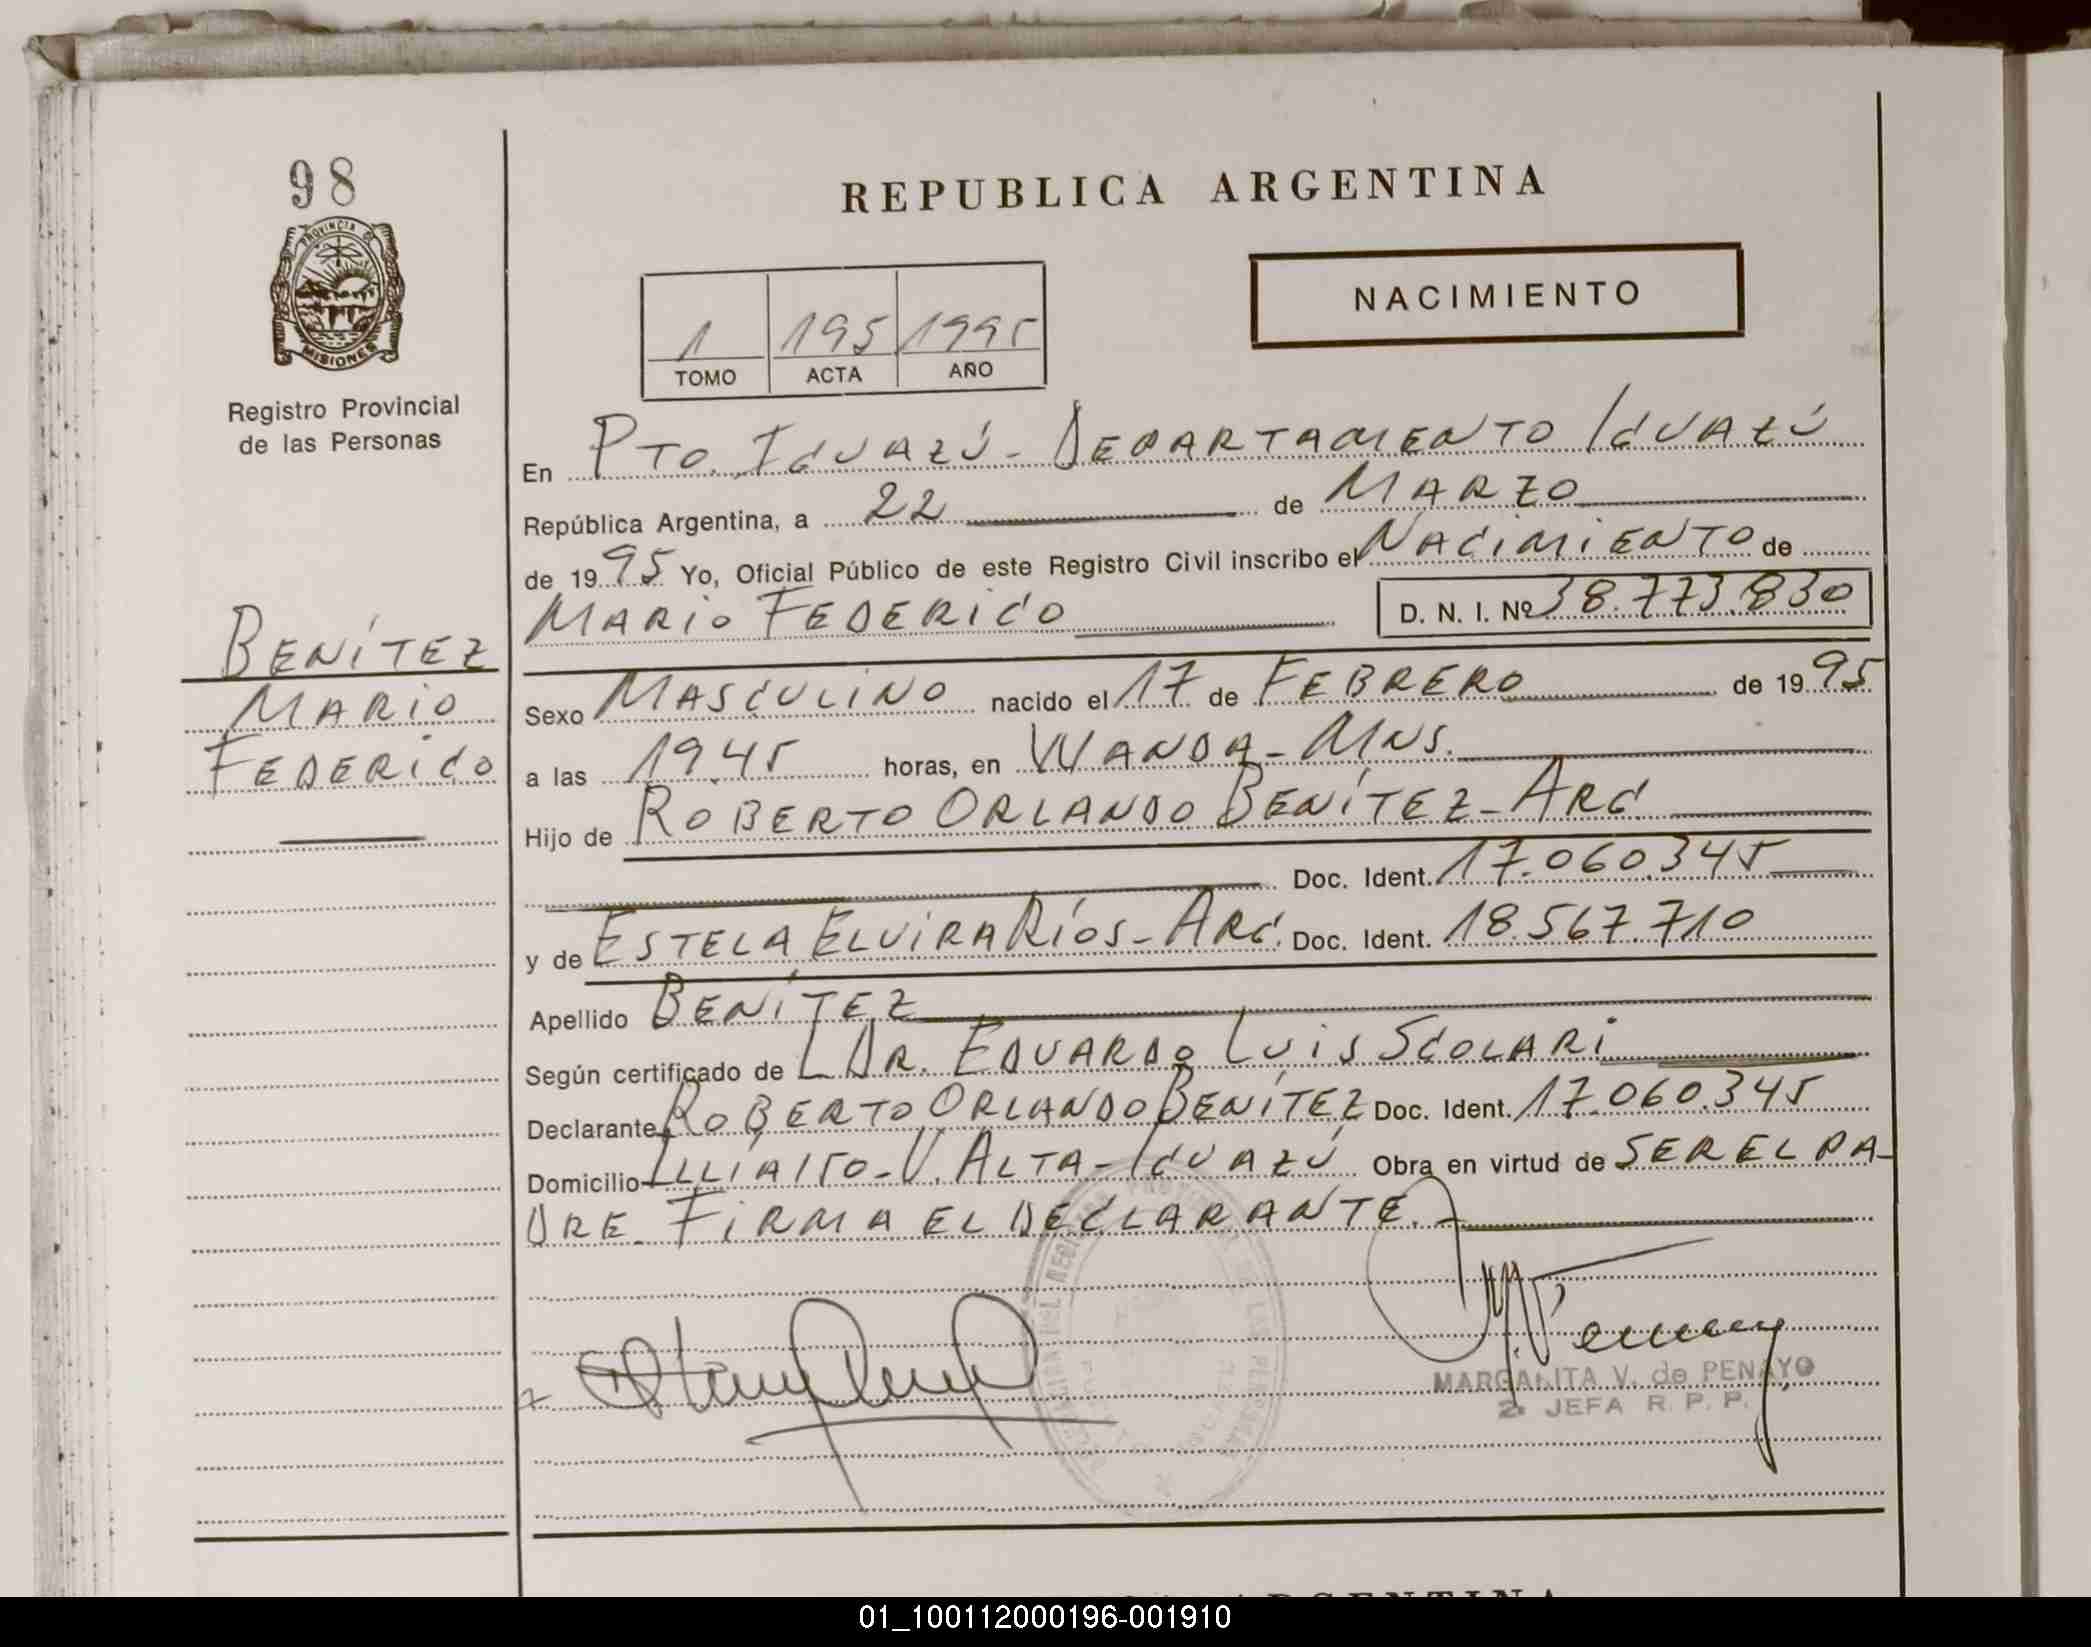 98
PROVINCIA DE
MISIONES
Registro Provincial
de las Personas
REPUBLICA ARGENTINA
NACIMIENTO
1 195 1995
TOMO ACTA AÑO
En PTO. IGUAZÚ - DEPARTAMENTO IGUAZÚ
República Argentina, a 22 de MARZO
de 1995 Yo, Oficial Público de este Registro Civil inscribo el NACIMIENTO de
MARIO FEDERICO D. N. I. Nº 38.773.830
BENÍTEZ
MARIO
FEDERICO
Sexo MASCULINO nacido el 17 de FEBRERO de 1995
a las 19.45 horas, en WANDA - MNS.
Hijo de ROBERTO ORLANDO BENÍTEZ - ARG.
Doc. Ident. 17.060.345
y de ESTELA ELVIRA RÍOS - ARG. Doc. Ident. 18.567.710
Apellido BENÍTEZ
Según certificado de L DR. EDUARDO LUIS SCOLARI
Declarante ROBERTO ORLANDO BENÍTEZ Doc. Ident. 17.060.345
Domicilio - V. ALTA - IGUAZÚ Obra en virtud de SER EL PA-
DRE. FIRMA EL DECLARANTE. -
MARGARITA V. de PENAYO
2ª JEFA R. P. P.
ARGENTINA
01_100112000196-001910